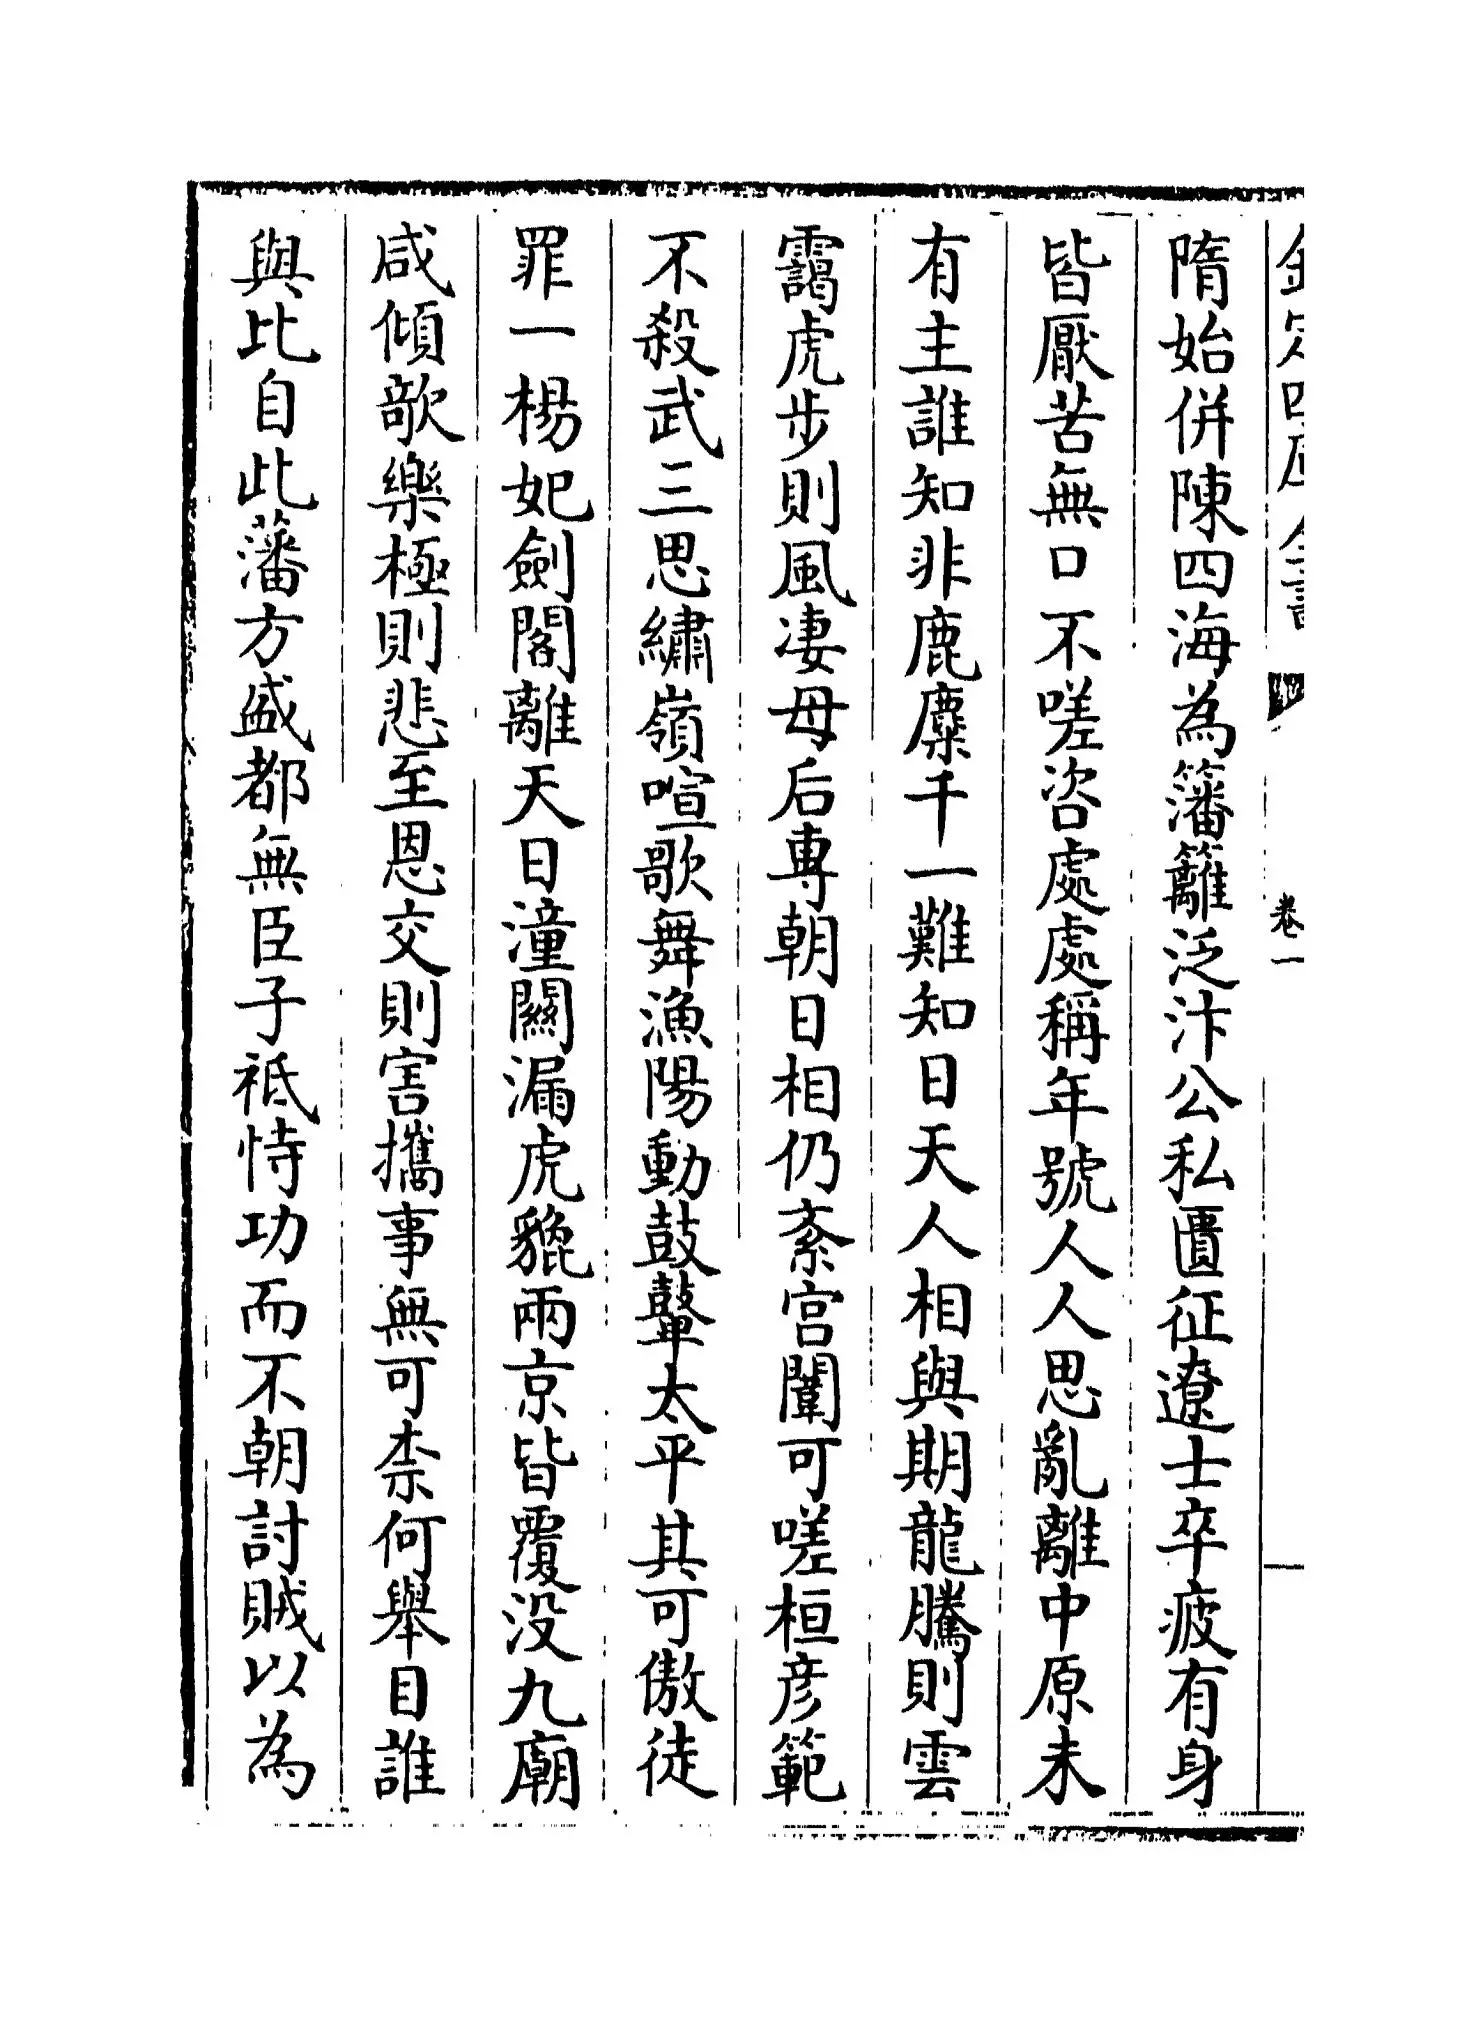 欽定四庫全書
卷一
隋始併陳四海為籓籬泛汴公私匱征遼士卒疲有身
皆厭苦無口不嗟咨處處稱年號人人思亂離中原未
有主誰知非鹿麋千一難知日天人相與期龍騰則雲
靄虎步則風凄母后專朝日相仍紊宫闈可嗟桓彦範
不殺武三思繡嶺喧歌舞漁陽動鼓鼙太平其可傲徒
罪一楊妃劍閣離天日潼關漏虎貔兩京皆覆没九廟
咸傾欹樂極則悲至恩交則害攜事無可柰何舉目誰
與比自此藩方盛都無臣子祗恃功而不朝討賊以為